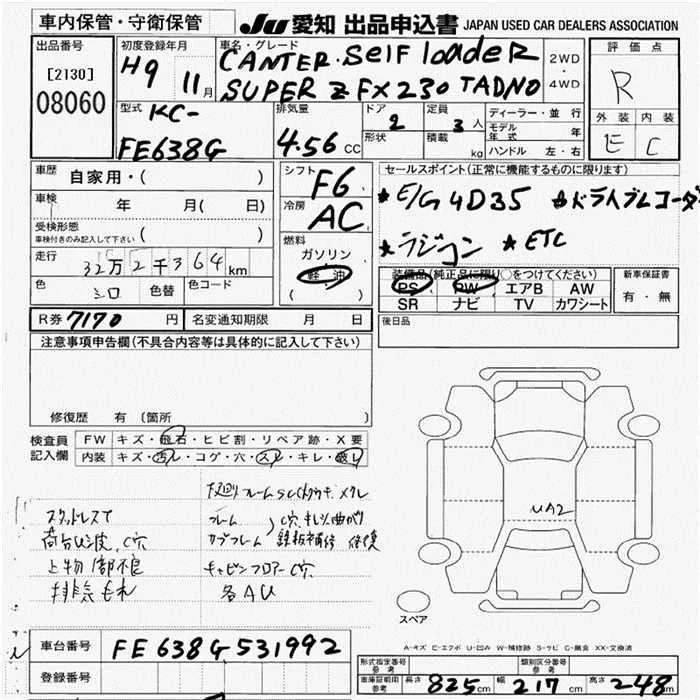 車内保管・守衛保管
JU 愛知 出品申込書 JAPAN USED CAR DEALERS ASSOCIATION
出品番号
[2130]
08060
初度登録年月
H9 年 11 月
車名・グレード
CANTER. Self loadeR
SUPER Z FX230 TADNO
2WD
・
4WD
評価点
R
外装 内装
E C
型式 KC-
FE638G
排気量
4.56 cc
ドア
2
形状
定員
3 人
積載
kg
ディーラー・並行
モデル年式 年
ハンドル 左・右
車歴 自家用・( )
車検 年 月( 日)
受検形態
車検付きのみ記入して下さい ( )
走行 32万2千364km
色 シロ 色替 色コード
シフト F6
冷房 AC
燃料
ガソリン
軽油
( )
セールスポイント(正常に機能するものに限ります)
★E/G 4D35 ★ドライブレコーダ
★ラジコン ★ETC
装備品(純正品に限り○をつけてください)
PS PW エアB AW
SR ナビ TV カワシート
新車保証書
有・無
R券 7170 円 名変通知期限 月 日
後日品
注意事項申告欄(不具合内容等は具体的に記入して下さい)
修復歴 有 (箇所
検査員記入欄
FW キズ・飛石・ヒビ割・リペア跡・X要
内装 キズ・汚レ・コゲ・穴・スレ・キレ・破レ
スタッドレス
荷台ひび波、C穴
上物1部不良
排気もれ
フレーム
サブフレーム
C穴
鉄板補修
キャビンフロアーC穴
各AU
UA2
スペア
A-キズ E-エクボ U-凹み W-補修跡 S-サビ C-腐食 XX-交換済
車台番号 FE638G531992
登録番号
形式指定番号 参考 類別区分番号 参考
車庫証明用 参考 長さ 825cm 幅 217cm 高さ 248cm